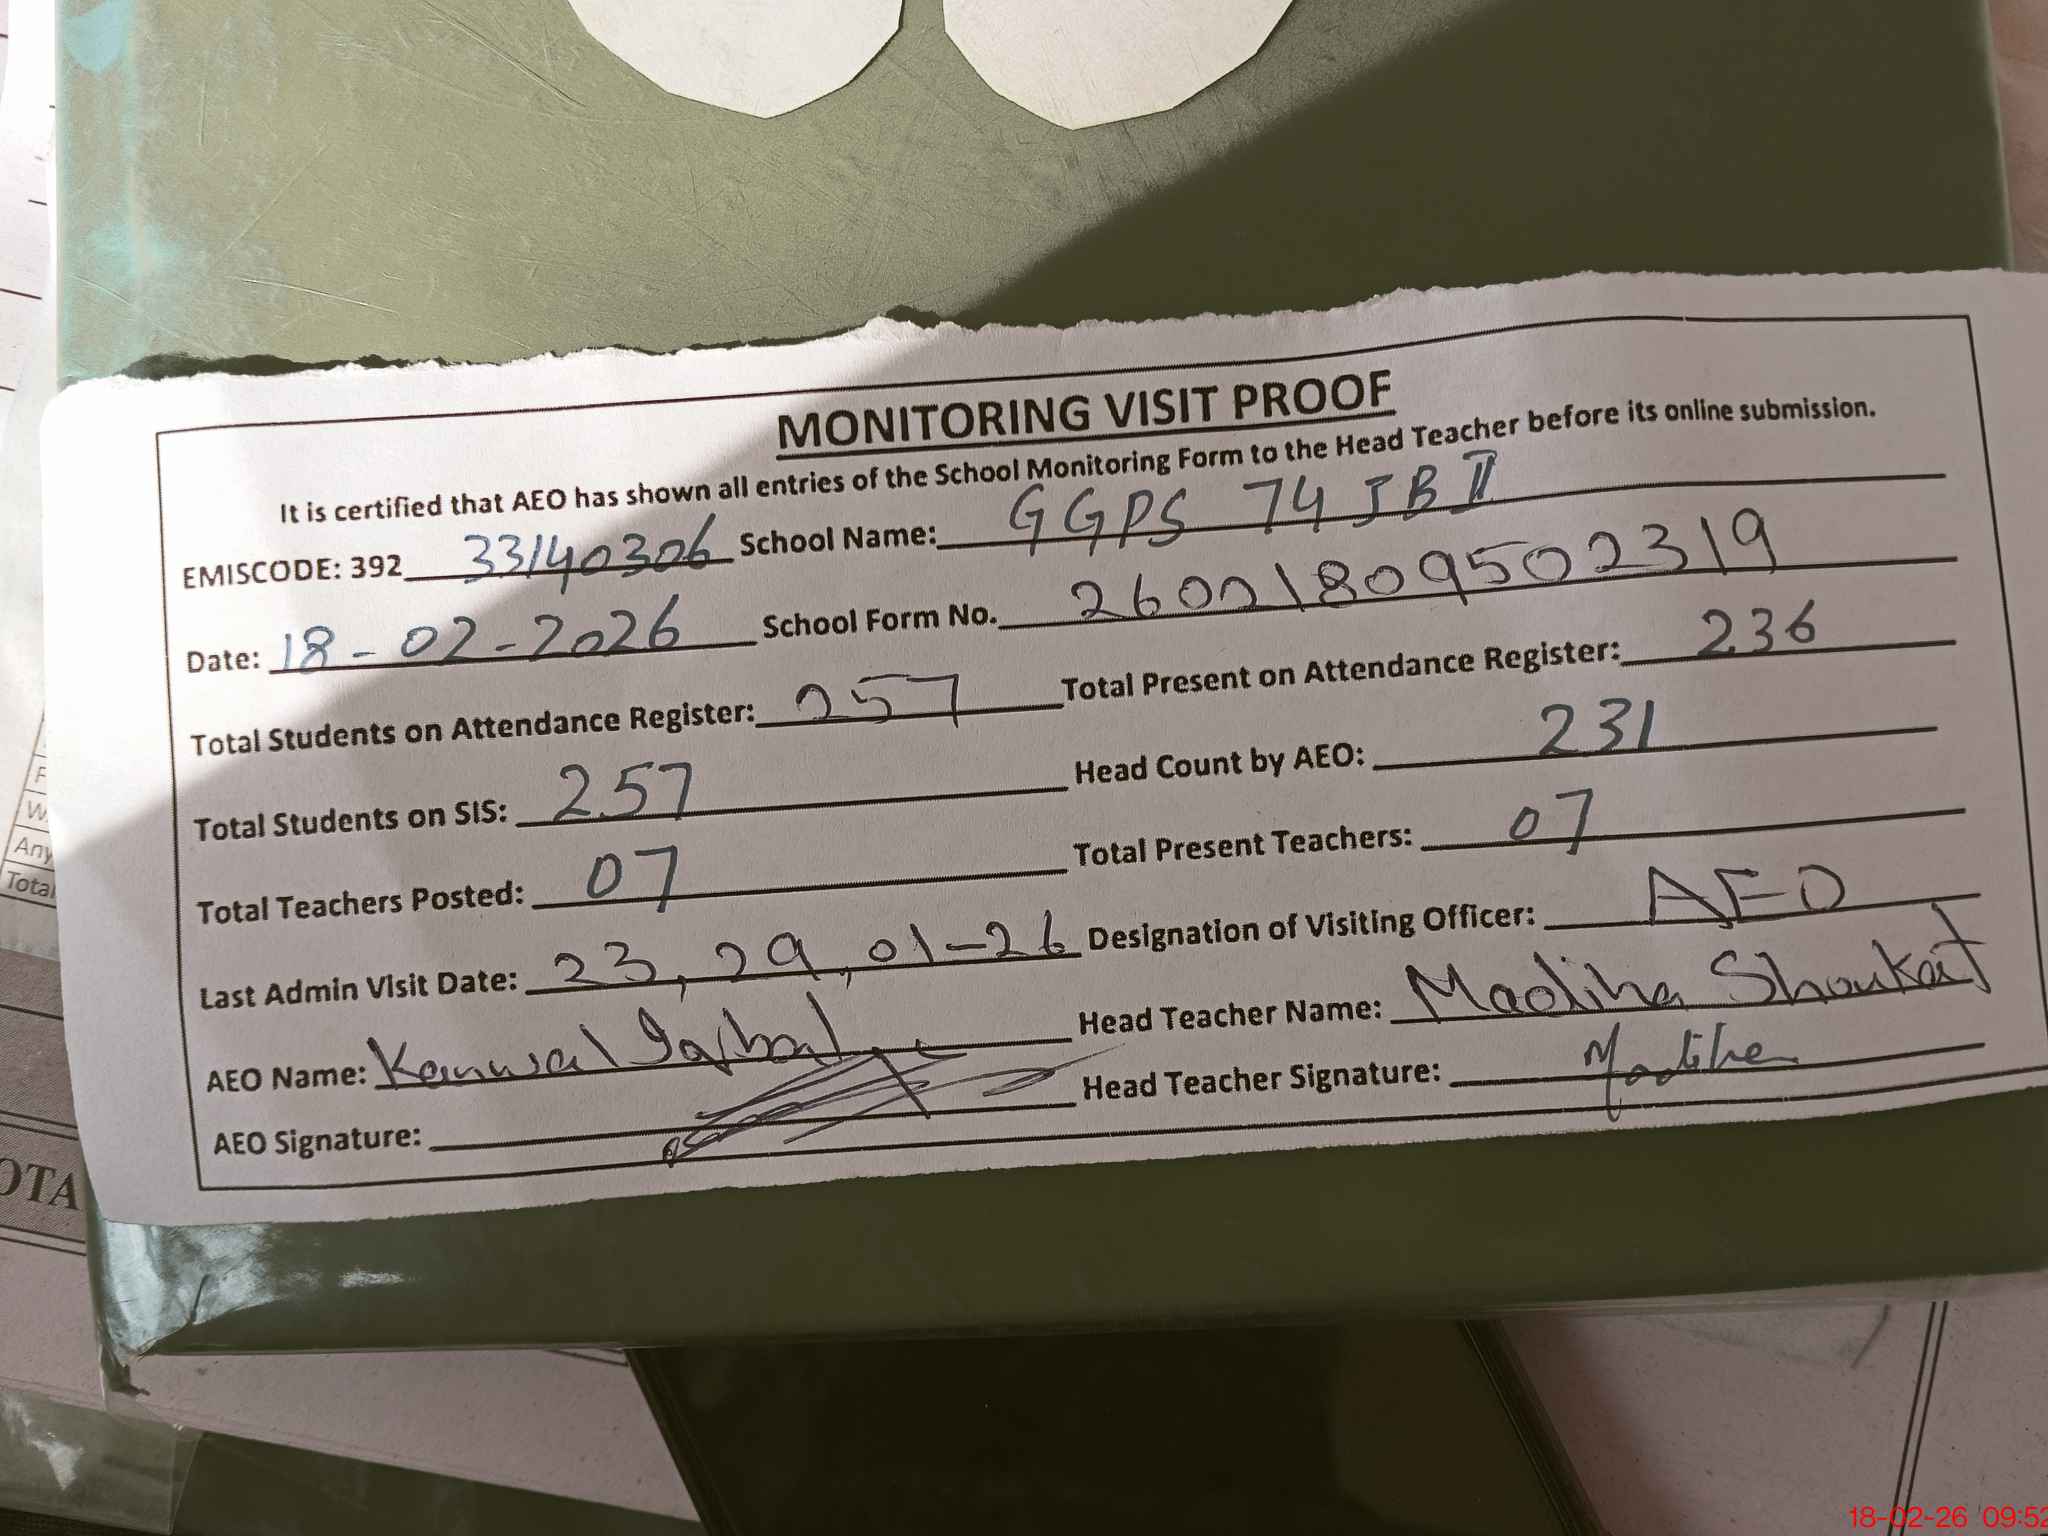 MONITORING VISIT PROOF
It is certified that AEO has shown all entries of the School Monitoring Form to the Head Teacher before its online submission.
EMISCODE: 392 33140306 School Name: GGPS 74 JB II
Date: 18-02-2026 School Form No. 26021809502319
Total Students on Attendance Register: 257 Total Present on Attendance Register: 236
Total Students on SIS: 257 Head Count by AEO: 231
Total Teachers Posted: 07 Total Present Teachers: 07
Last Admin Visit Date: 23, 29, 01-26 Designation of Visiting Officer: AEO
AEO Name: Kanwal Iqbal Head Teacher Name: Madiha Shoukat
AEO Signature: Head Teacher Signature: Madiha
Any
Total
OTA
18-02-26 09:52